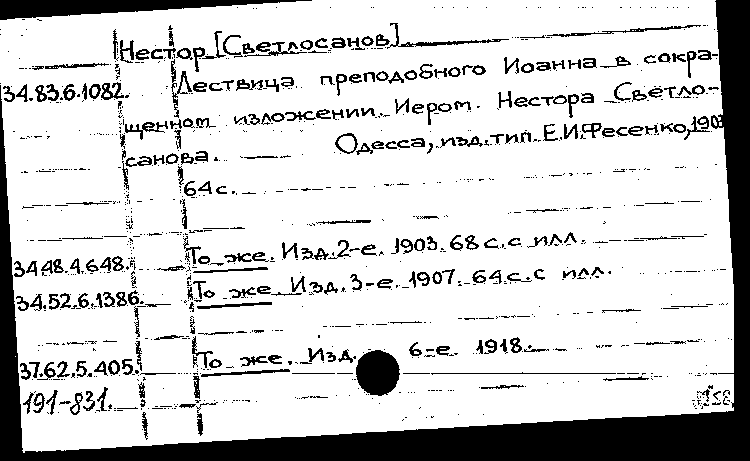 Нестор [Светлосанов].
34.83.6.1082. Лествица преподобного Иоанна в сокра-
щенном изложении. Иером. Нестора Светло-
санова. Одесса, изд. тип. Е.И.Фесенко, 1903
64 с.
34.48.4.648. То же. Изд. 2-е. 1903. 68 с. с илл.
34.52.6.1386. То же. Изд. 3-е. 1907. 64 с. с илл.
37.62.5.405. То же. Изд. 6-е 1918.
191-831.